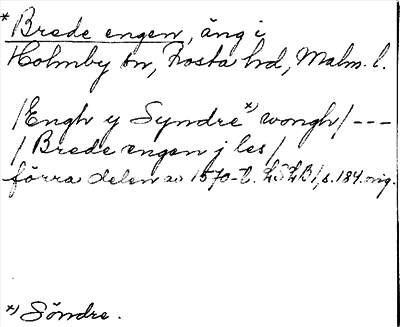 * Brede engen, äng i
Holmby sn, Frosta hd, Malm. l.
/Engh y Syndre*) wongh/ ---
/ Brede engen j les /
förra delen av 1570-t. LSLB 1, s. 184. orig.
*) Söndre.